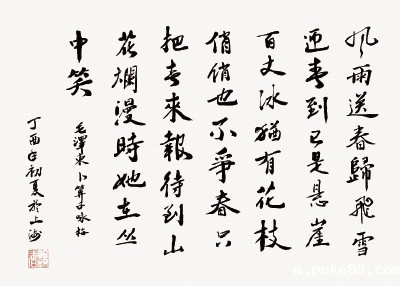 風雨送春歸飛雪
迎春到已是悬崖
百丈冰猶有花枝
俏俏也不爭春只
把春來報待到山
花爛漫時她在丛
中笑
毛澤東卜算子咏梅
丁酉年初夏於上海
m.pske88.com